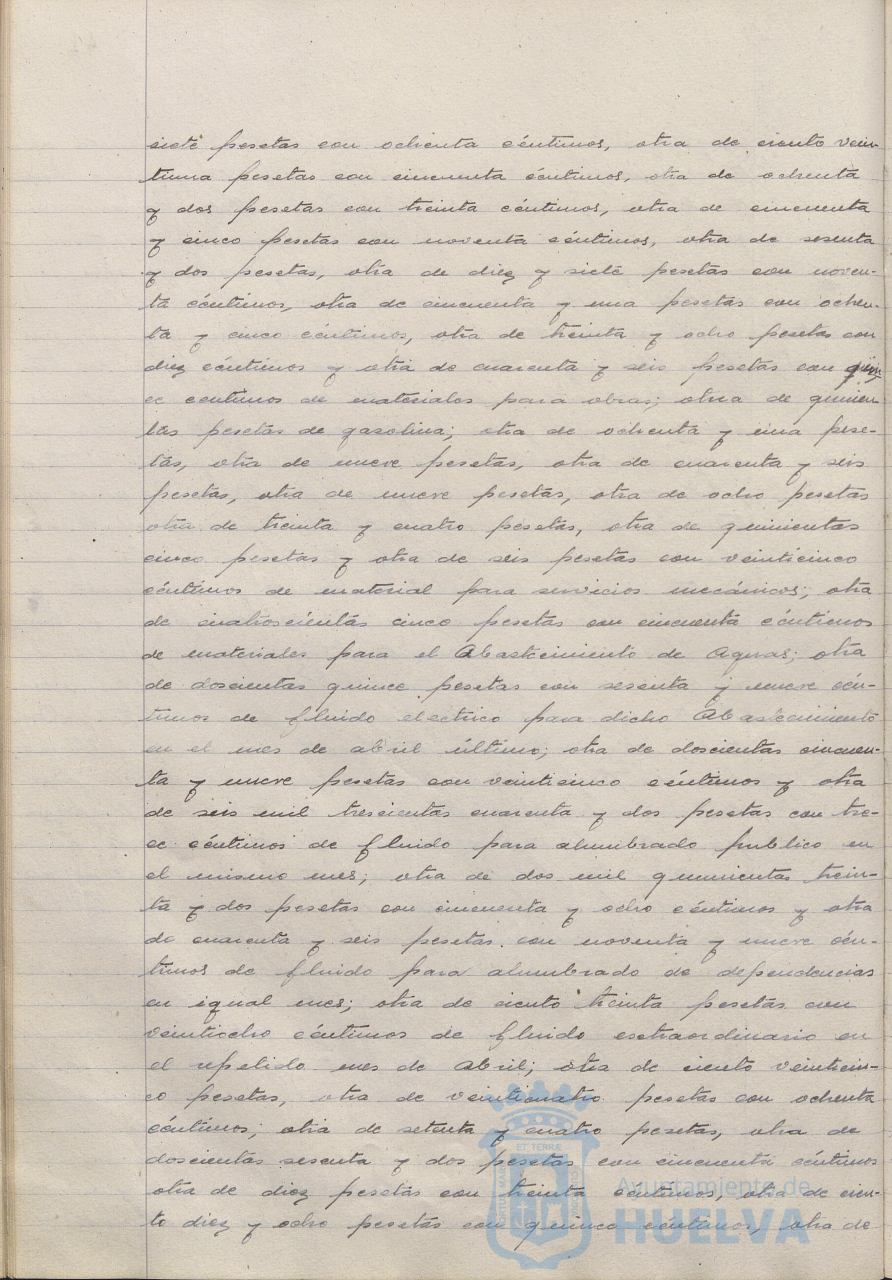 siete pesetas con ochenta céntimos, otra de ciento vein-
tiuna pesetas con cincuenta céntimos, otra de ochenta
y dos pesetas con treinta céntimos, otra de cincuenta
y cinco pesetas con noventa céntimos, otra de sesenta
y dos pesetas, otra de diez y siete pesetas con noven-
ta céntimos, otra de cincuenta y una pesetas con ochen-
ta y cinco céntimos, otra de treinta y ocho pesetas con
diez céntimos y otra de cuarenta y seis pesetas con quin-
ce centimos de materiales para obras; otra de quinien
tas pesetas de gasolina; otra de ochenta y una pese-
tas, otra de nueve pesetas, otra de cuarenta y seis
pesetas, otra de nueve pesetas, otra de ocho pesetas
otra de treinta y cuatro pesetas, otra de quinientas
cinco pesetas y otra de seis pesetas con veinticinco
céntimos de material para servicios mecánicos; otra
de cuatroscientas cinco pesetas con cincuenta céntimos
de materiales para el Abastecimiento de Aguas; otra
de doscientas quince pesetas con sesenta y nueve cén-
timos de fluido electrico para dicho Abastecimiento
en el mes de abril último; otra de doscientas cincuen-
ta y nueve pesetas con veinticinco céntimos y otra
de seis mil trescientas cuarenta y dos pesetas con tre-
ce céntimos de fluido para alumbrado publico en
el mismo mes; otra de dos mil quinientas trein-
ta y dos pesetas con cincuenta y ocho céntimos y otra
de cuarenta y seis pesetas con noventa y nueve cén-
timos de fluido para alumbrado de dependencias
en igual mes; otra de ciento treinta pesetas con
veintiocho céntimos de fluido extraordinario en
el repetido mes de Abril; otra de ciento veinticin-
co pesetas, otra de veinticuatro pesetas con ochenta
céntimos; otra de setenta y cuatro pesetas, otra de
doscientas sesenta y dos pesetas con cincuenta céntimos
otra de diez pesetas con treinta céntimos, otra de cien-
to diez y ocho pesetas con quince centimos, otra de
ET TERRA
Ayuntamiento de
HUELVA